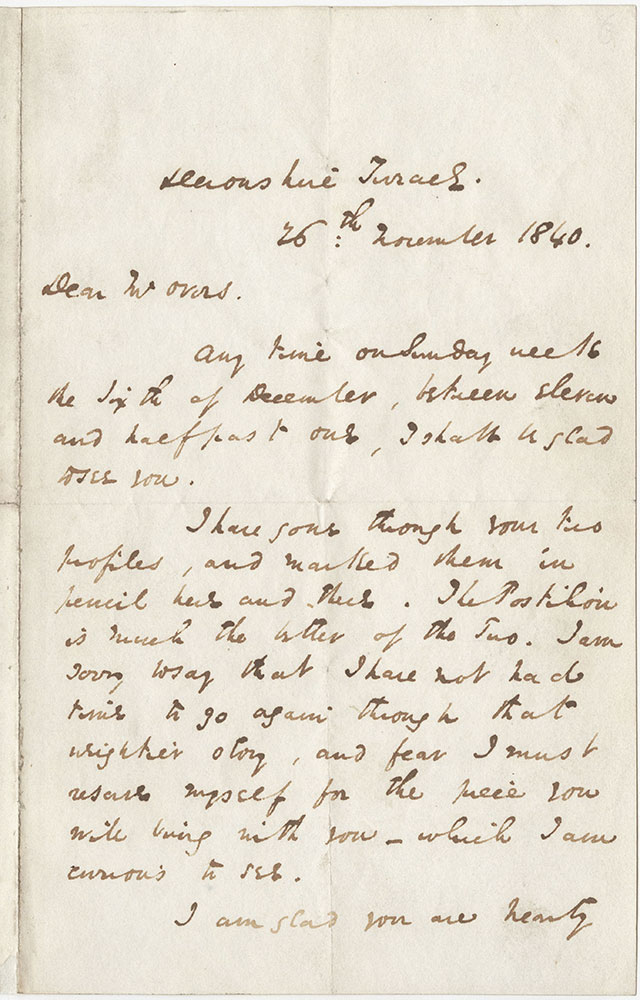 Devonshire Terrace.
26th November 1840.
Dear Mr Overs.
Any time on Sunday week
the Sixth of December, between eleven
and half past one, I shall be glad
to see you.
I have gone through your two
profiles, and marked them in
pencil here and there. The Postilion
is much the better of the Two. I am
sorry to say that I have not had
time to go again through that
weightier story, and fear I must
reserve myself for the piece you
will bring with you – which I am
curious to see.
I am glad you are hearty